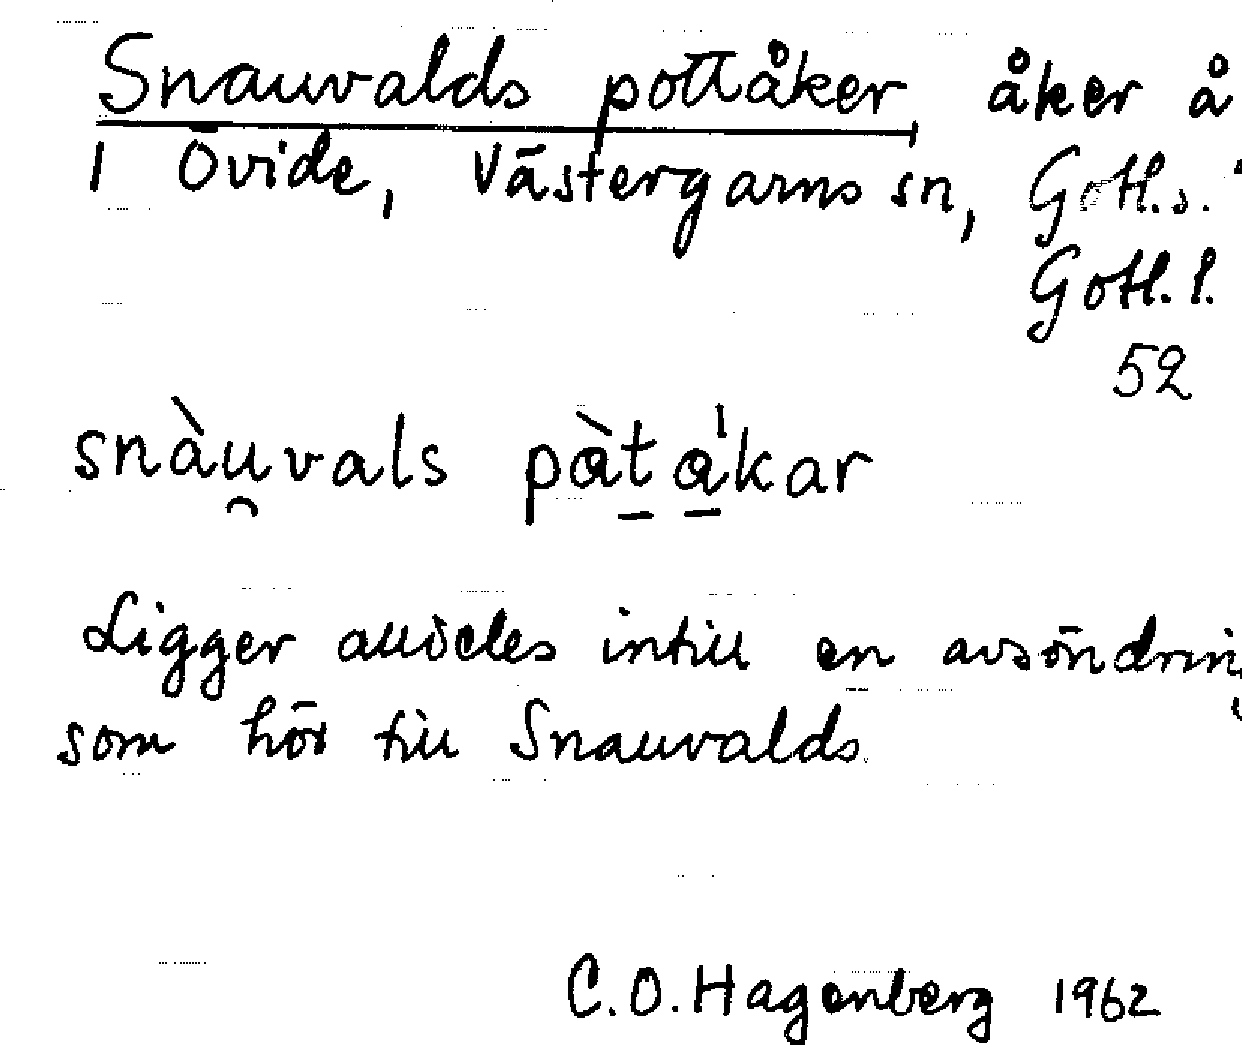 Snauvalds pottåker åker å
1 Övide, Västergarns sn, Gotl.s.
Gotl. l.
52
snàu̯vals pàt̠a̠'kar
Ligger alldeles intill en avsöndrin
som hör till Snauvalds.
C.O. Hagenberg 1962